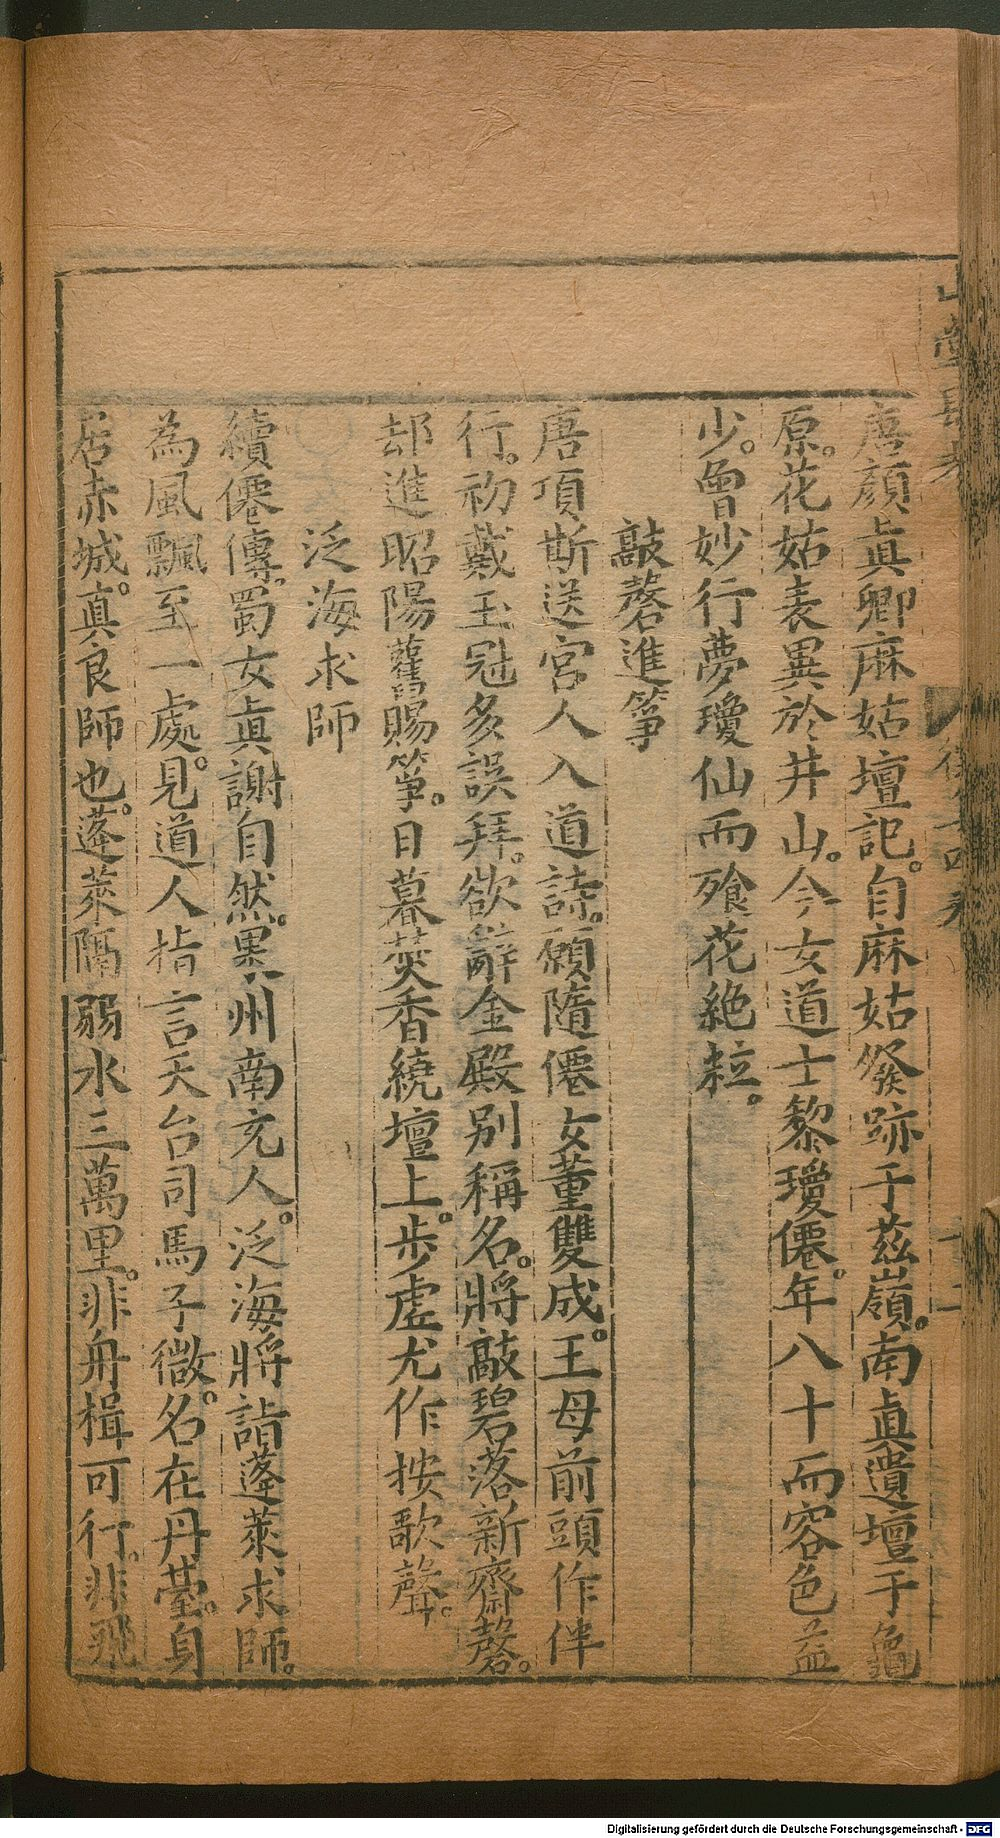 唐顏眞卿麻姑壇記。自麻姑發跡于茲嶺。南眞遺壇于龜
原。花姑表異於井山。今女道士黎瓊僊。年八十而容色益
少。曾妙行夢瓊仙而飧花絶粒。
敲磬進箏
唐項斯送宮人入道詩。願隨僊女董雙成。王母前頭作伴
行。初戴玉冠多誤拜。欲辭金殿別稱名。將敲碧落新齋磬。
却進昭陽舊賜箏。日暮焚香繞壇上。步虛尤作按歌聲。
泛海求師
續僊傳。蜀女眞謝自然。果州南充人。泛海將詣蓬萊求師。
為風飄至一處。見道人指言天台司馬子微。名在丹臺。身
居赤城。真良師也。蓬萊隔弱水三萬里。非舟楫可行。非飛
山堂
Digitalisierung gefördert durch die Deutsche Forschungsgemeinschaft - DFG